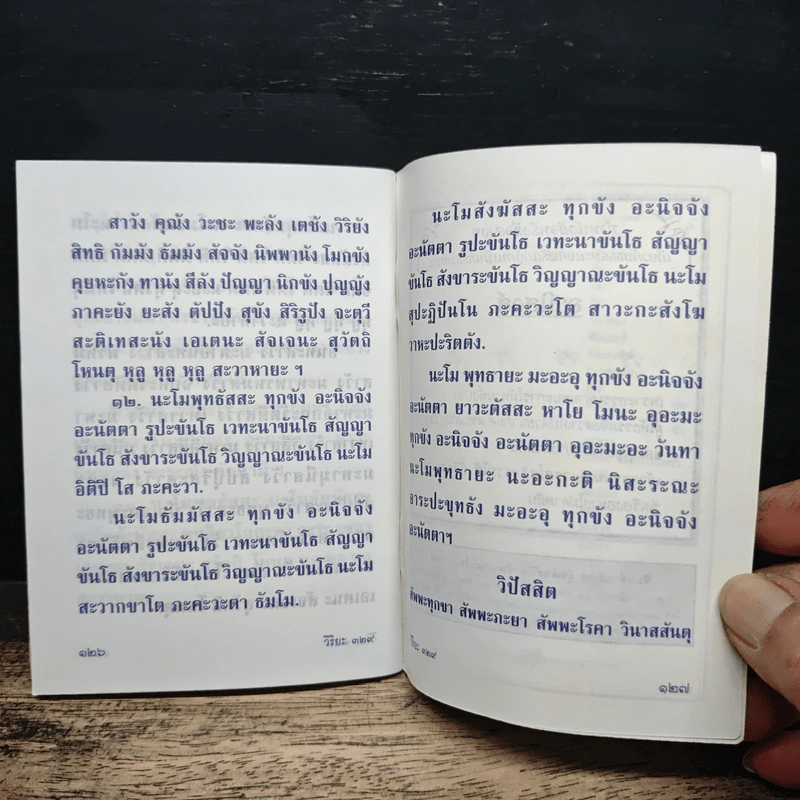 สาวัง คุณัง วะชะ พะลัง เตชัง วิริยัง
สิทธิ กัมมัง ธัมมัง สัจจัง นิพพานัง โมกขัง
คุยหะกัง ทานัง สีลัง ปัญญา นิกขัง ปุญญัง
ภาคะยัง ยะสัง ตัปปัง สุขัง สิริรูปัง จะตุวี
สะติเทสะนัง เอเตนะ สัจเจนะ สุวัตถิ
โหนตุ หุลู หุลู หุลู สะวาหายะ ฯ
๑๒. นะโมพุทธัสสะ ทุกขัง อะนิจจัง
อะนัตตา รูปะขันโธ เวทะนาขันโธ สัญญา
ขันโธ สังขาระขันโธ วิญญาณะขันโธ นะโม
อิติปิ โส ภะคะวา.
นะโมธัมมัสสะ ทุกขัง อะนิจจัง
อะนัตตา รูปะขันโธ เวทะนาขันโธ สัญญา
ขันโธ สังขาระขันโธ วิญญาณะขันโธ นะโม
สะวากขาโต ภะคะวะตา ธัมโม.
วิริยะ ๓๒๙
๑๒๖
นะโมสังฆัสสะ ทุกขัง อะนิจจัง
อะนัตตา รูปะขันโธ เวทะนาขันโธ สัญญา
ขันโธ สังขาระขันโธ วิญญาณะขันโธ นะโม
สุปะฏิปันโน ภะคะวะโต สาวะกะสังโฆ
วาหะปะริตตัง.
นะโม พุทธายะ มะอะอุ ทุกขัง อะนิจจัง
อะนัตตา ยาวะตัสสะ หาโย โมนะ อุอะมะ
ทุกขัง อะนิจจัง อะนัตตา อุอะมะอะ วันทา
นะโมพุทธายะ นะอะกะติ นิสะระณะ
อาระปะขุทธัง มะอะอุ ทุกขัง อะนิจจัง
อะนัตตาฯ
วิปัสสิต
สัพพะทุกขา สัพพะภะยา สัพพะโรคา วินาสสันตุ
วิริยะ ๓๒๙
๑๒๗